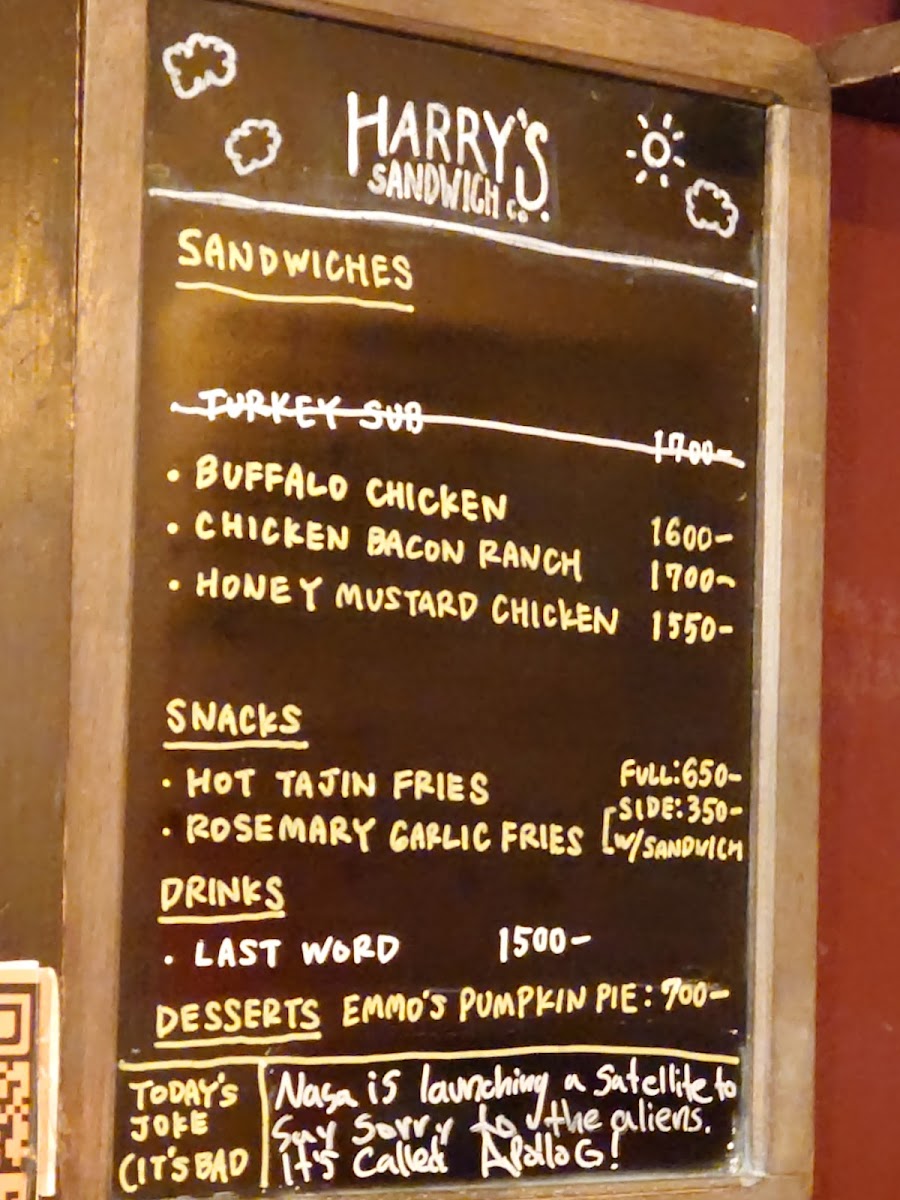 HARRY'S
SANDWICH CO.
SANDWICHES
TURKEY SUB 1700-
• BUFFALO CHICKEN 1600-
• CHICKEN BACON RANCH 1700-
• HONEY MUSTARD CHICKEN 1550-
SNACKS
• HOT TAJIN FRIES FULL:650-
SIDE:350-
• ROSEMARY GARLIC FRIES W/SANDWICH
DRINKS
• LAST WORD 1500-
DESSERTS EMMO'S PUMPKIN PIE: 700-
TODAY'S
JOKE
(IT'S BAD
Nasa is launching a satellite to
say sorry to the aliens.
it's called Apollo G!